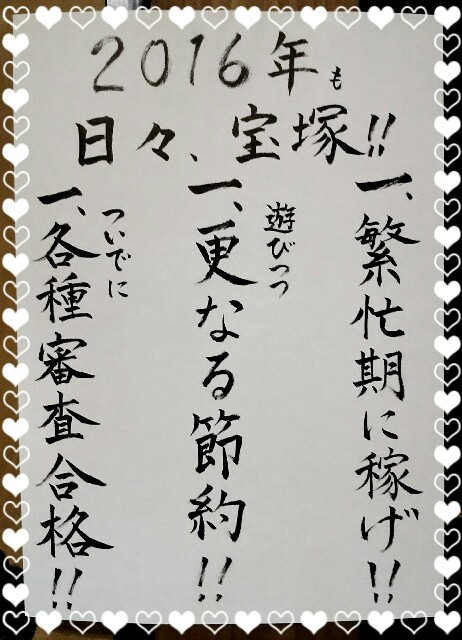 2016年も
日々、宝塚!!
一、繁忙期に稼げ!!
遊びつつ
一、更なる節約!!
ついでに
一、各種審査合格!!